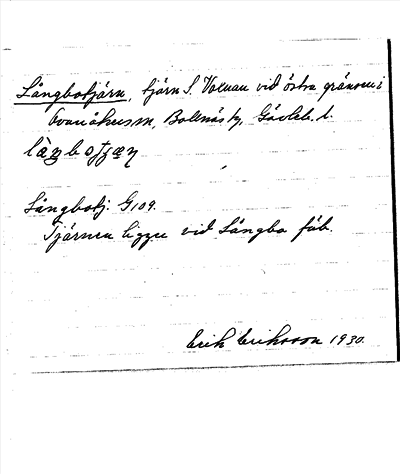 Långbotjärn, tjärn S. Voxnan vid östra gränsen i
Ovanåkers sn, Bollnäs tg, Gävleb. l.
Långbotj. G109.
Tjärnen ligger vid Långbo fäb.
Erik Eriksson 1930.